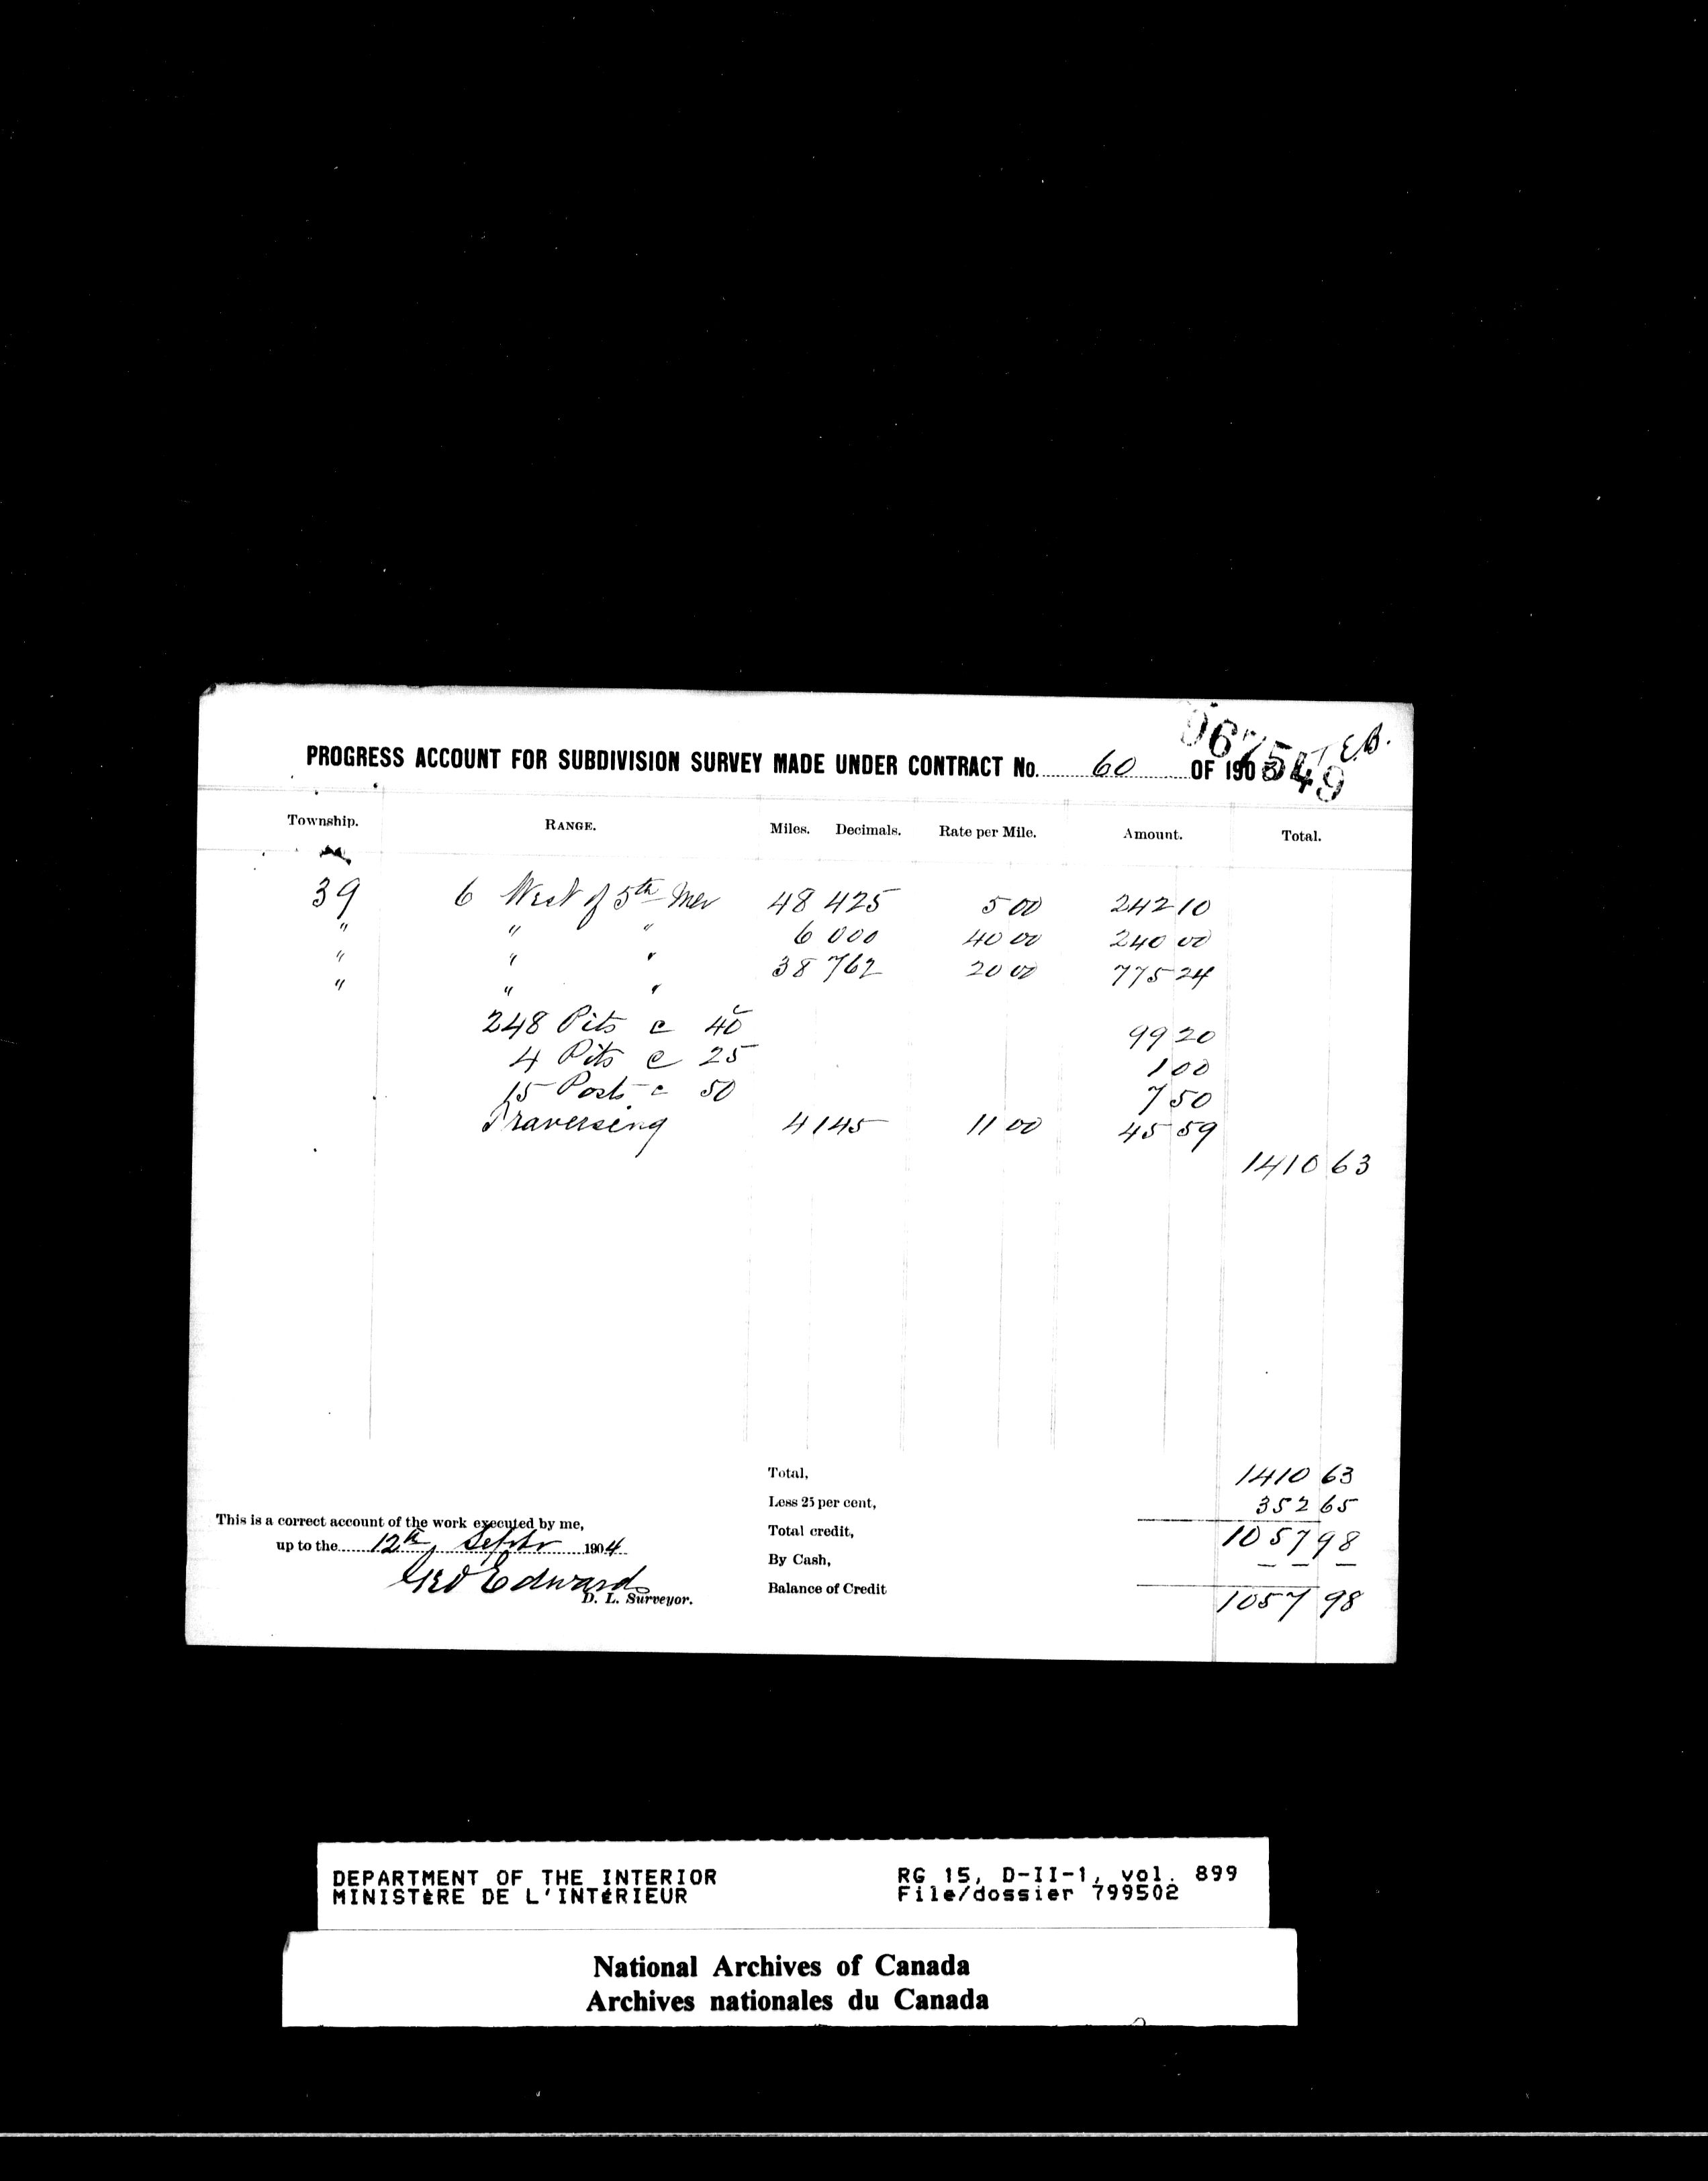 967549 EB.
PROGRESS ACCOUNT FOR SUBDIVISION SURVEY MADE UNDER CONTRACT No. 60 OF 190
Township. RANGE. Miles. Decimals. Rate per Mile. Amount. Total.
39 6 West of 5th Mer 48 425 5 00 242 10
" " " 6 000 40 00 240 00
" " " 38 762 20 00 775 24
" " "
248 Pits @ 40c 99 20
4 Pits @ 25 1 00
15 Posts @ 50 7 50
Traversing 4 145 11 00 45 59
1410 63
Total, 1410 63
Less 25 per cent, 352 65
Total credit, 1057 98
By Cash, — — —
Balance of Credit 1057 98
This is a correct account of the work executed by me,
up to the 12th Septbr 1904
Geo Edwards
D. L. Surveyor.
DEPARTMENT OF THE INTERIOR RG 15, D-II-1, vol. 899
MINISTÈRE DE L'INTÉRIEUR File/dossier 799502
National Archives of Canada
Archives nationales du Canada